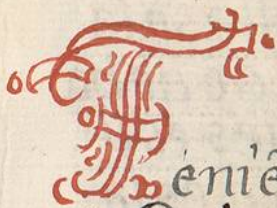 Teniē